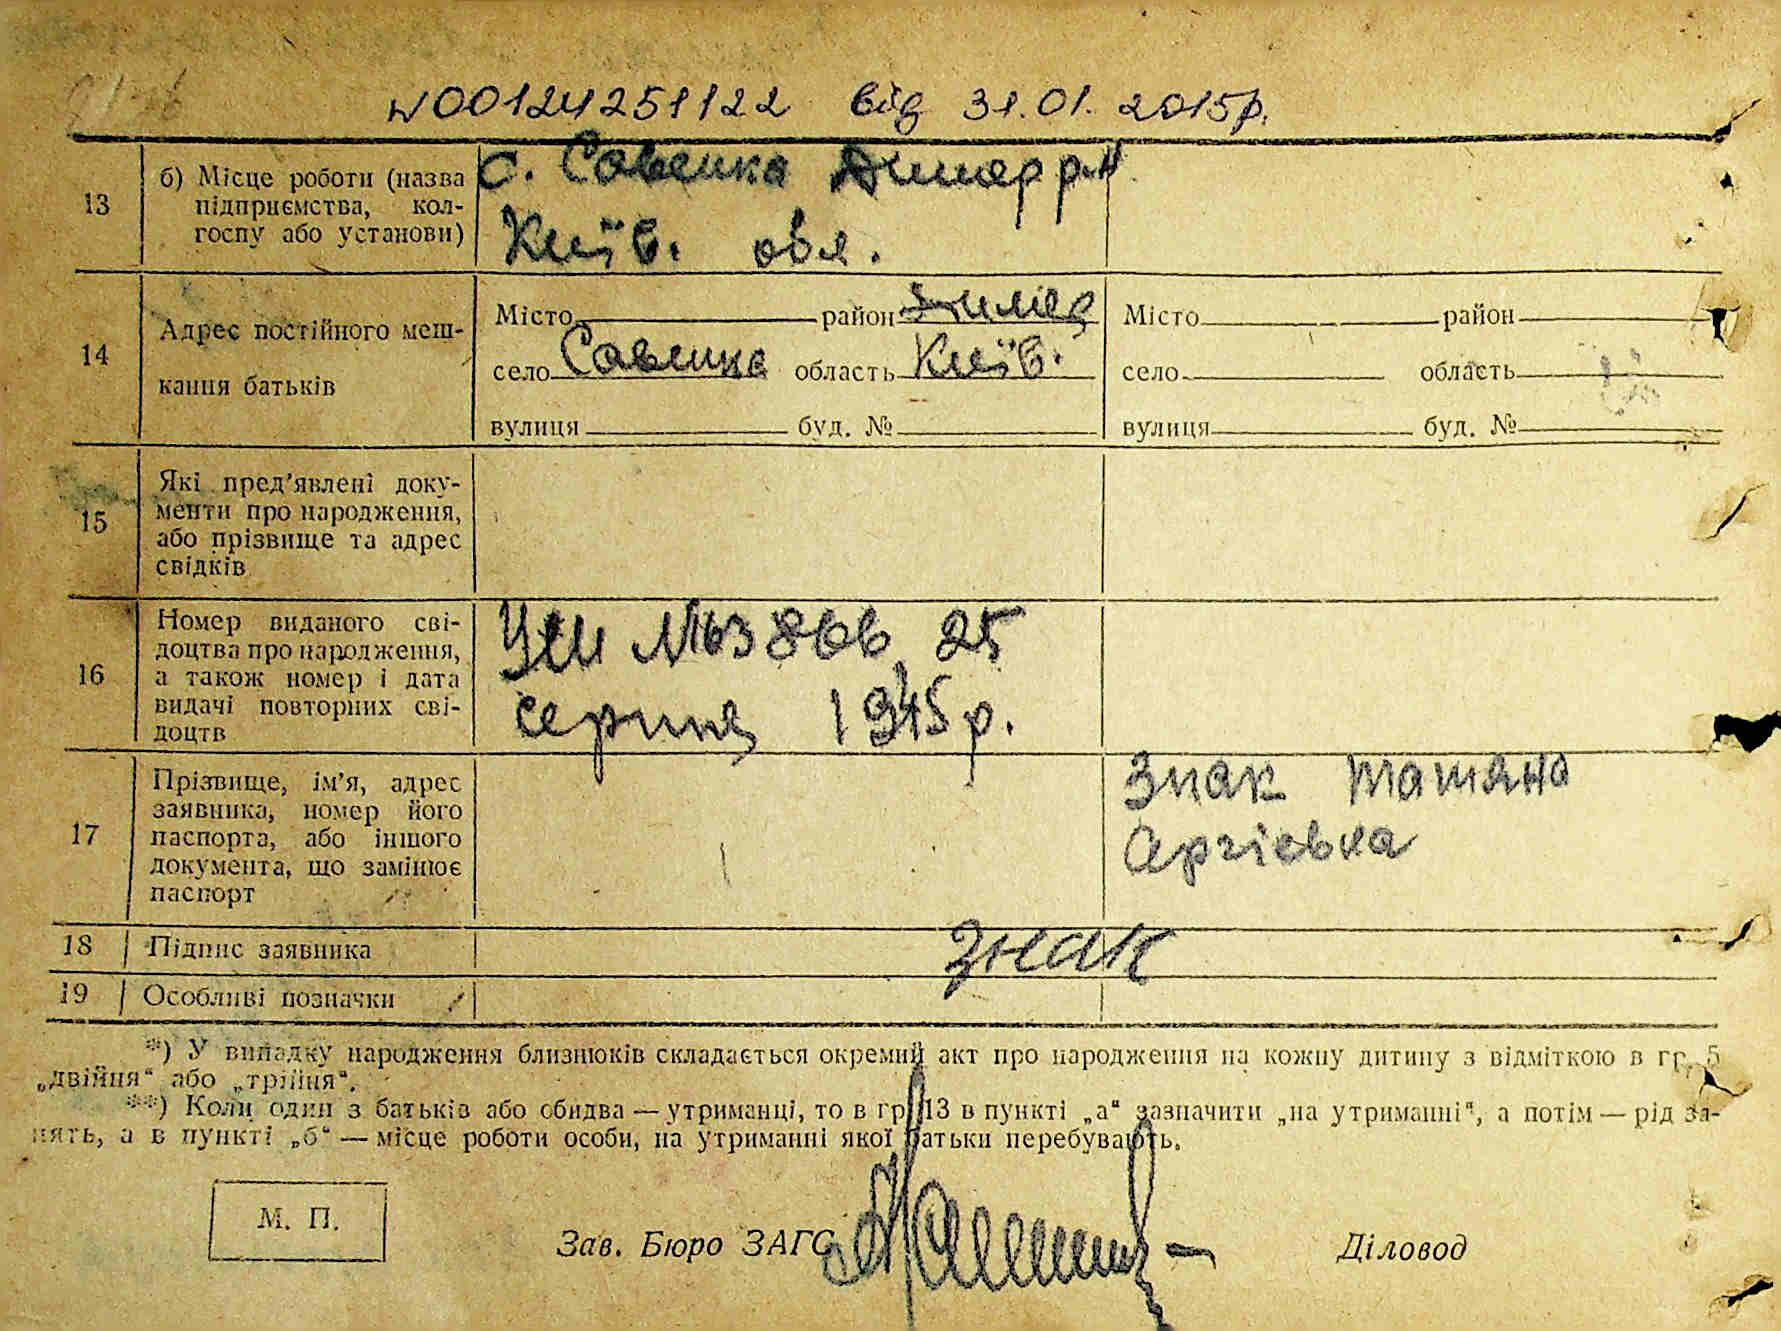 N00124251122 від 31.01.2015р.
13
б) Місце роботи (назва
підприємства, кол-
госпу або установи)
с. Савенка Димер р-н
Київ. обл.
14
Адрес постійного меш-
кання батьків
Місто район Димер
село Савенка область Київ.
вулиця буд. №
Місто район
село область
вулиця буд. №
15
Які пред'явлені доку-
менти про народження,
або прізвище та адрес
свідків
16
Номер виданого сві-
доцтва про народження,
а також номер і дата
видачі повторних сві-
доцтв
25
серпня 1945 р.
17
Прізвище, ім'я, адрес
заявника, номер його
паспорта, або іншого
документа, що замінює
паспорт
Знак Татяна
Сргієвна
18 Підпис заявника
Знак
19 Особливі позначки
*) У випадку народження близнюків складається окремий акт про народження на кожну дитину з відміткою в гр. 5
„двійня“ або „трійня“.
**) Коли один з батьків або обидва — утриманці, то в гр. 13 в пункті „а“ зазначити „на утриманні“, а потім — рід за-
нять, а в пункті „б“ — місце роботи особи, на утриманні якої батьки перебувають.
М. П.
Зав. Бюро ЗАГС
Діловод